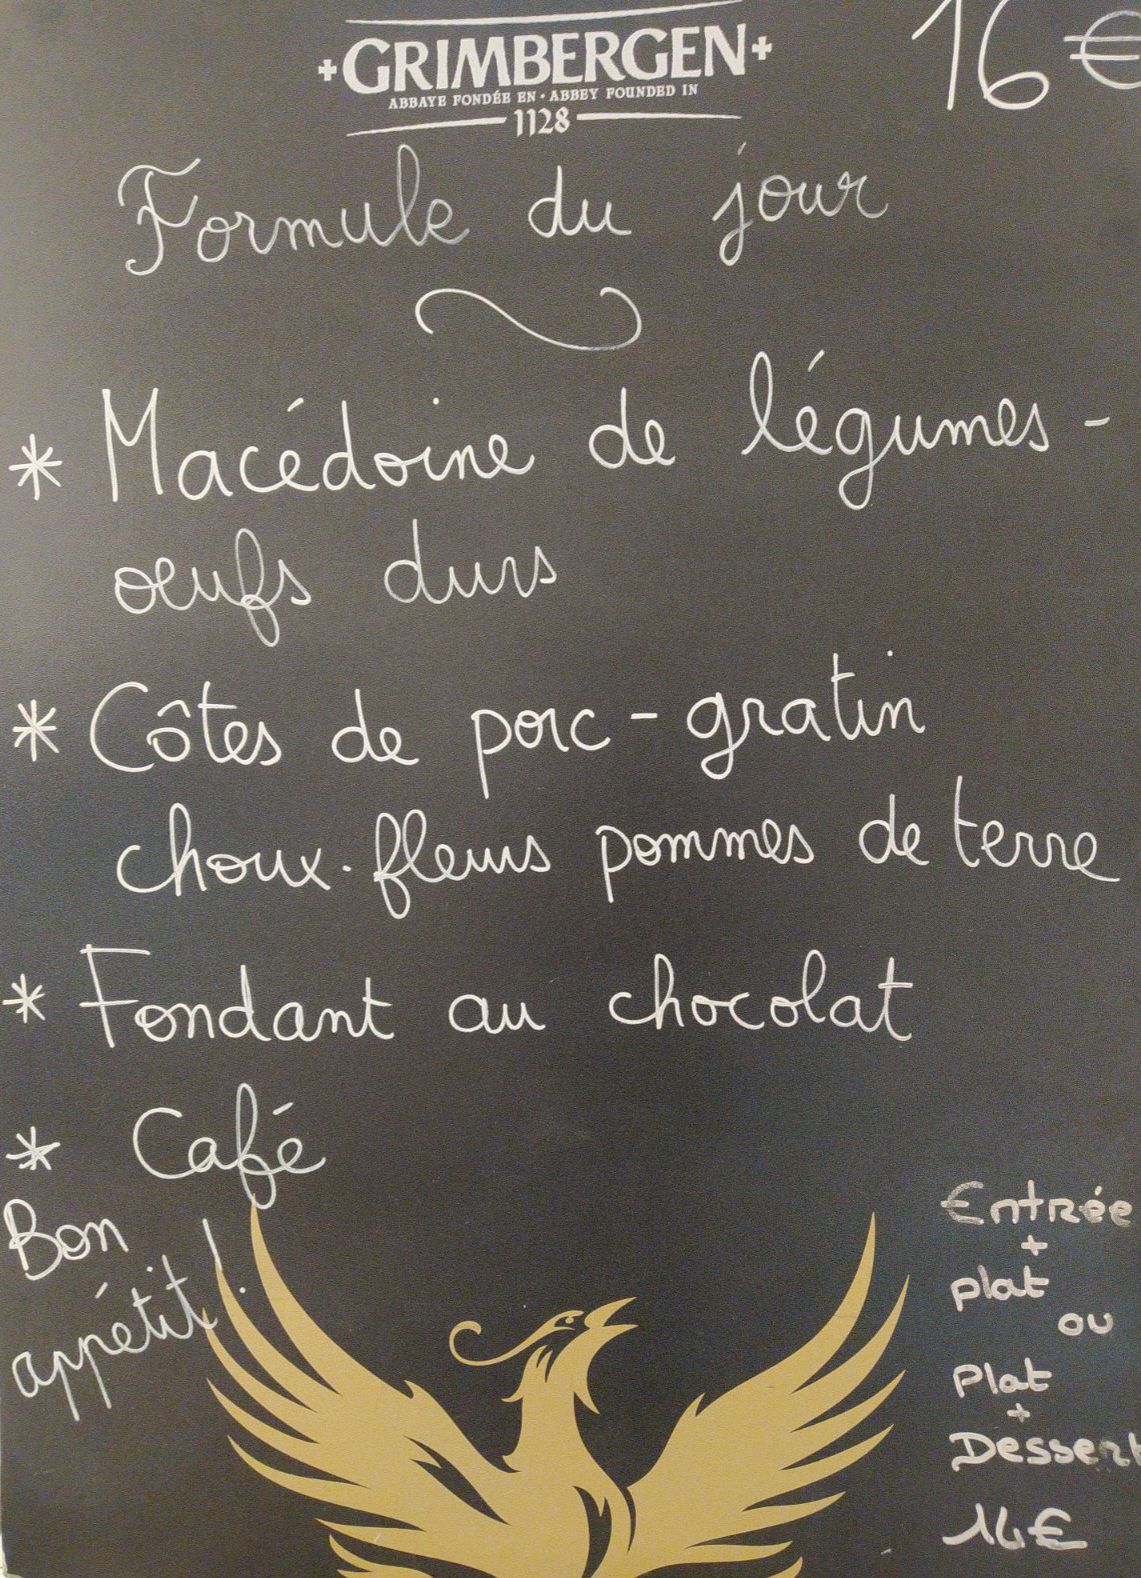 GRIMBERGEN
ABBAYE FONDÉE EN · ABBEY FOUNDED IN
1128
16€
Formule du jour
* Macédoine de légumes -
oeufs durs
* Côtes de porc - gratin
choux-fleurs pommes de terre
* Fondant au chocolat
* Café
Bon
appétit !
Entrée
+
plat
ou
Plat
+
Dessert
14€